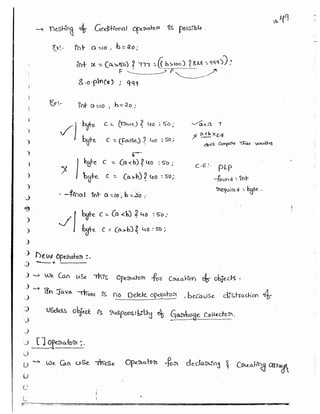 49
→ nesting of Conditional operator is possible
Ex:- int a =10 , b=20;
int x = (a>50) ? 777 : ((b>100) ? 888 : 999);
F F
S.o.pln(x) ; 999
Ex:- int a=10 , b=20;
✓ byte c = (true) ? 40 : 50; ✓ a<15 T
byte c = (false) ? 40 : 50; x a<b x<8
don't Compare two variables
x byte c = (a<b) ? 40 : 50; C.E: PLP
byte c = (a>b) ? 40 : 50; -found : int
required : byte.
- final int a=10, b=20;
✓ byte c = (a<b) ? 40 : 50;
byte c = (a>b) ? 40 : 50;
new operator :-
→ we Can use this operator for creation of objects.
→ In Java there is no Delete operator . because distraction of
useless object is responsibility of Garbage Collector.
[ ] operator :-
→ we Can use these operator for declaring & Creating array